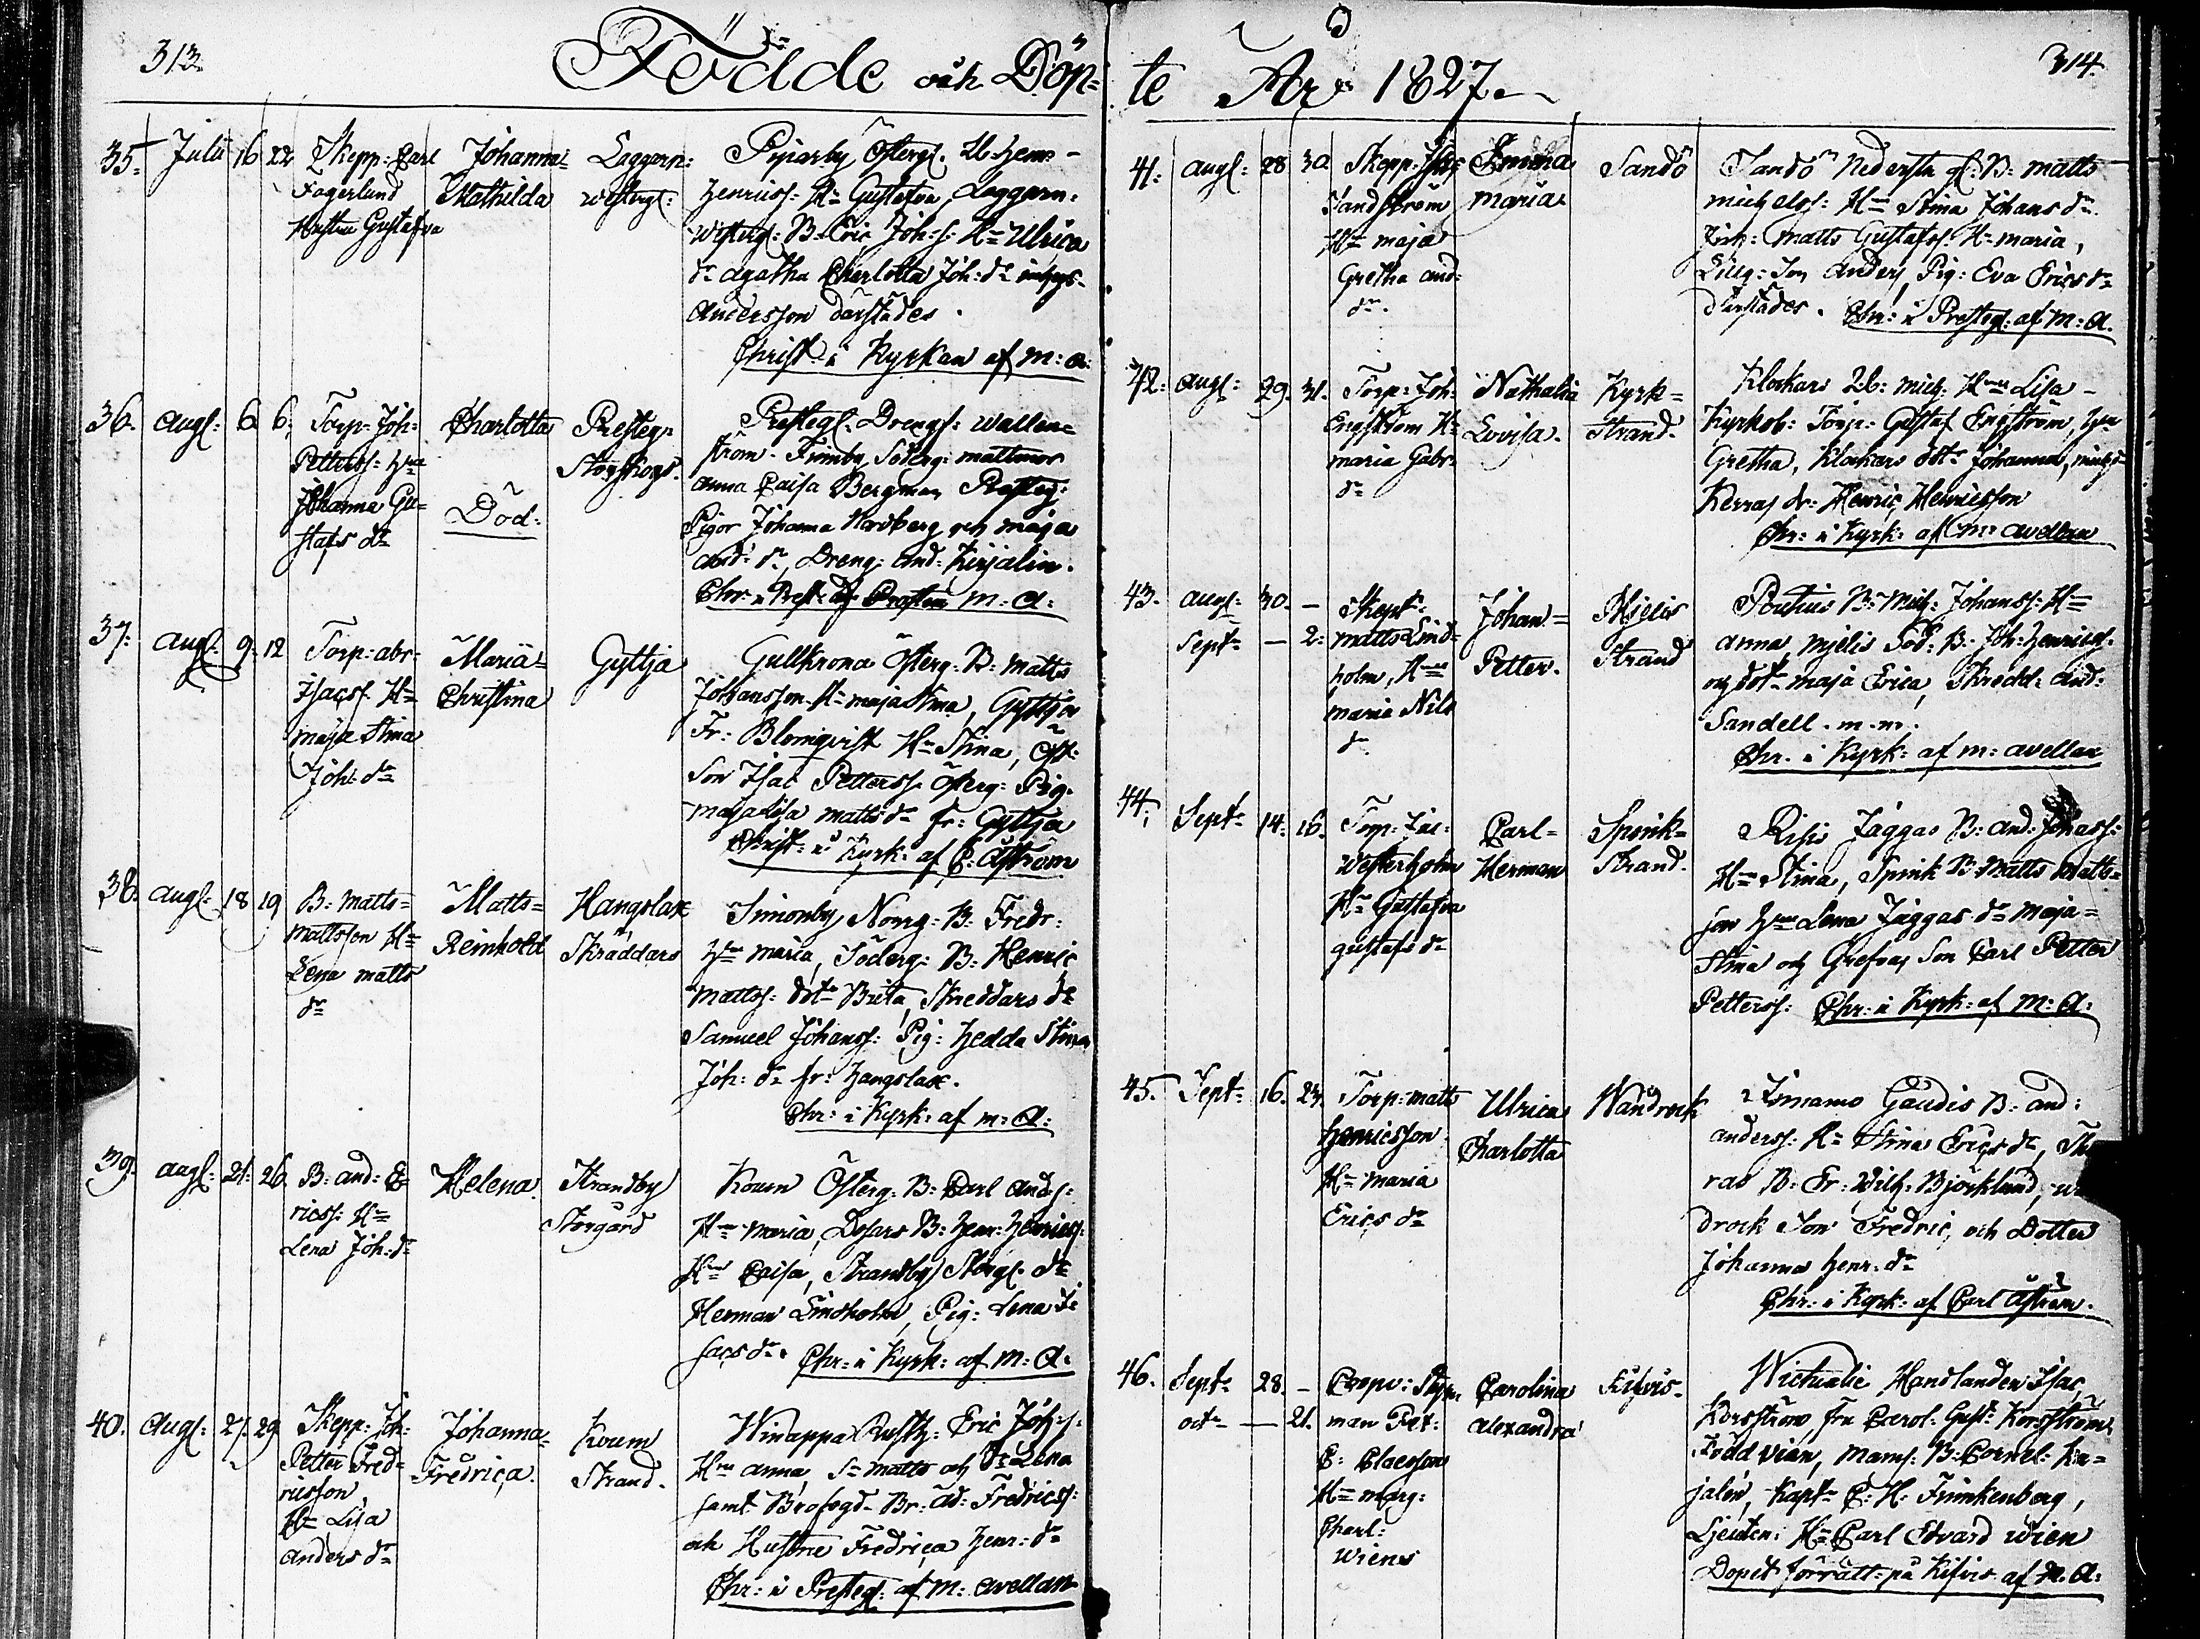 313.
Födde och Döp=
35. Julii 16 22 Skepp: Carl
Fagerlund
Hustru Gustafva
Johanna=
Mathilda
Laggarn:
westergl:
Pijparby Östergl.
Henrics: H:n Gustafva, Laggarn.
westergl: B: Eric Joh:s: H:n Ulrica
d:r agatha Charlotta Joh: d:r
Andersson därstädes.
Christ: i Kyrkan af M: A:
36. Augl: 6 6. Torp: Joh:
Petterss: H:n
Johanna Gu=
stafs d:r
Charlotta
Död:
Presteg:
Storskogs.
Prestegl. Drengs: Wallen=
ström. Finnby Söderg: mattmor
anna Caisa Bergman, Presteg:
Pigor Johanna Nordberg och maja
and: d:r, Dreng: And: Kirjalin.
Chr: i Prest: af Prosten M: A:
37. Augl: 9. 12 Torp: abr:
Isacss. H:n
maja Stina
Joh: d:r
Maria=
Christina
Gyttja
Gullkrona Österg: B: Matts
Johansson. H:n maja Stina, Gyttja
Fr: Blomqvist H:n Stina,
Son Isac Petterss. Österg: Pig.
maja Lisa matts d:r fr: Gyttja
Christ: i Kyrk: af C: Åström
38. Augl: 18 19 B: Matts=
mattsson H:n
Lena matts
d:r
Matts=
Reinhold
Hangslax
Skräddars
Simonby Norrg: B: Fredr:
H:n maria, Söderg: B: Henric
Matts: dot:r Brita, Skreddars d:r
Samuel Johanss: Pig: Hedda Stina
Joh: d:r fr: Hangslax.
Chr: i Kyrk: af M: A:
39. Augl: 21. 26. B: And: E=
ricss: H:n
Lena Joh: d:r
Helena
Strandby
Storgård
Koum Österg: B: Carl Ands:
H:n Maria, B: Henr: Henricss:
H:n Caisa, Strandby Storgl. d:r
Herman Lindholm, Pig: Lena I=
sacs d:r. Chr: i Kyrk: af M: A.
40. Augl: 27. 29 Skepp: Joh:
Petter Fred=
ricsson
H:n Lisa
Anders d:r
Johanna=
Fredrica.
Koum
Strand.
Winappa Eric Joh:s:
H:n anna, S:n matts och D:r Lena
samt Brofogd. Br: Ad: Fredricss:
och Hustru Fredrica Henr: d:r
Chr: i Prestegl: af M: Avellan
314.
te År 1827.
41. Augl: 28 30. Skepp: Isac
Sandström
H:n maja
Gretha and:
d:r.
Emma
Maria
Sandö
Sandö Nedersta gl: B: matts
michelss: H:n Stina Johans d:r.
matts Gustafss: H:n maria,
Son Anders, Pig: Eva Erics d:r
därstädes. Chr: i Presteg: af M: A.
42. Augl: 29. 31. Torp: Joh:
Engström H:n
maria Gabr:
d:r
Nathalia
Lovisa.
Kyrk=
Strand.
Klockars B: Mich: H:n Lisa
Kyrkob: Gustaf Engström, H:n
Gretha, Klockars dot:r Johanna,
Kerras dr: Henric Henricsson
Chr: i Kyrk: af M: Avellan
43. Augl: 30. —
Sept:r — 2. Skepp:
matts Lind=
holm, H:n
maria Nils
d:r
Johan=
Petter.
Mjelis
Strand
Pontius B: Mich: Johanss: H:n
anna, Mjelis Söd: B: Joh: Henricss:
och dot:r maja Erica, Skredd: And:
Sandell. m.m.
Chr. i Kyrk: af M: Avellan
44. Sept:r 14. 16. Torp: Jac:
Westerholm
H:n Gustafva
gustafs d:r
Carl=
Herman
Spink=
Strand.
Risis Jäggas B: And: Johass:
H:n Stina, Spink B: Matts Matts=
son H:n Lena Jäggas d:r Maja=
Stina och Grefvas Son Carl Petter
Petterss: Chr: i Kyrk: af M: A:
45. Sept:r 16. 23. Torp: matts
Henricsson
H:n maria
Erics d:r
Ulrica
Charlotta
Wandrock
Simamo Gaudis B: And:
anderss: H:n Stina Erics d:r,
ras B: Er: Wilh: Björklund,
drock Son Fredric, och Dotter
Johanna Henr: d:r
Chr: i Kyrk: af Carl Åström.
46. Sept:r 28. —
oct:r — 21. Coopv: Styr=
man Pet:
C: Claesson
H:n marg:
Charl:
Wiens
Carolina
Alexandra
Kifvis.
Wictualie Handlanden Isac
Korsström, fru Carol: Gust: Korsström
Född Wien, Mams: B: Cornel: Kir=
jalén, Kapt:n C: H: Frinkenberg,
Ljeuten: H:n Carl Edvard Wien
Dopet förrätt: på Kifvis af M. A: